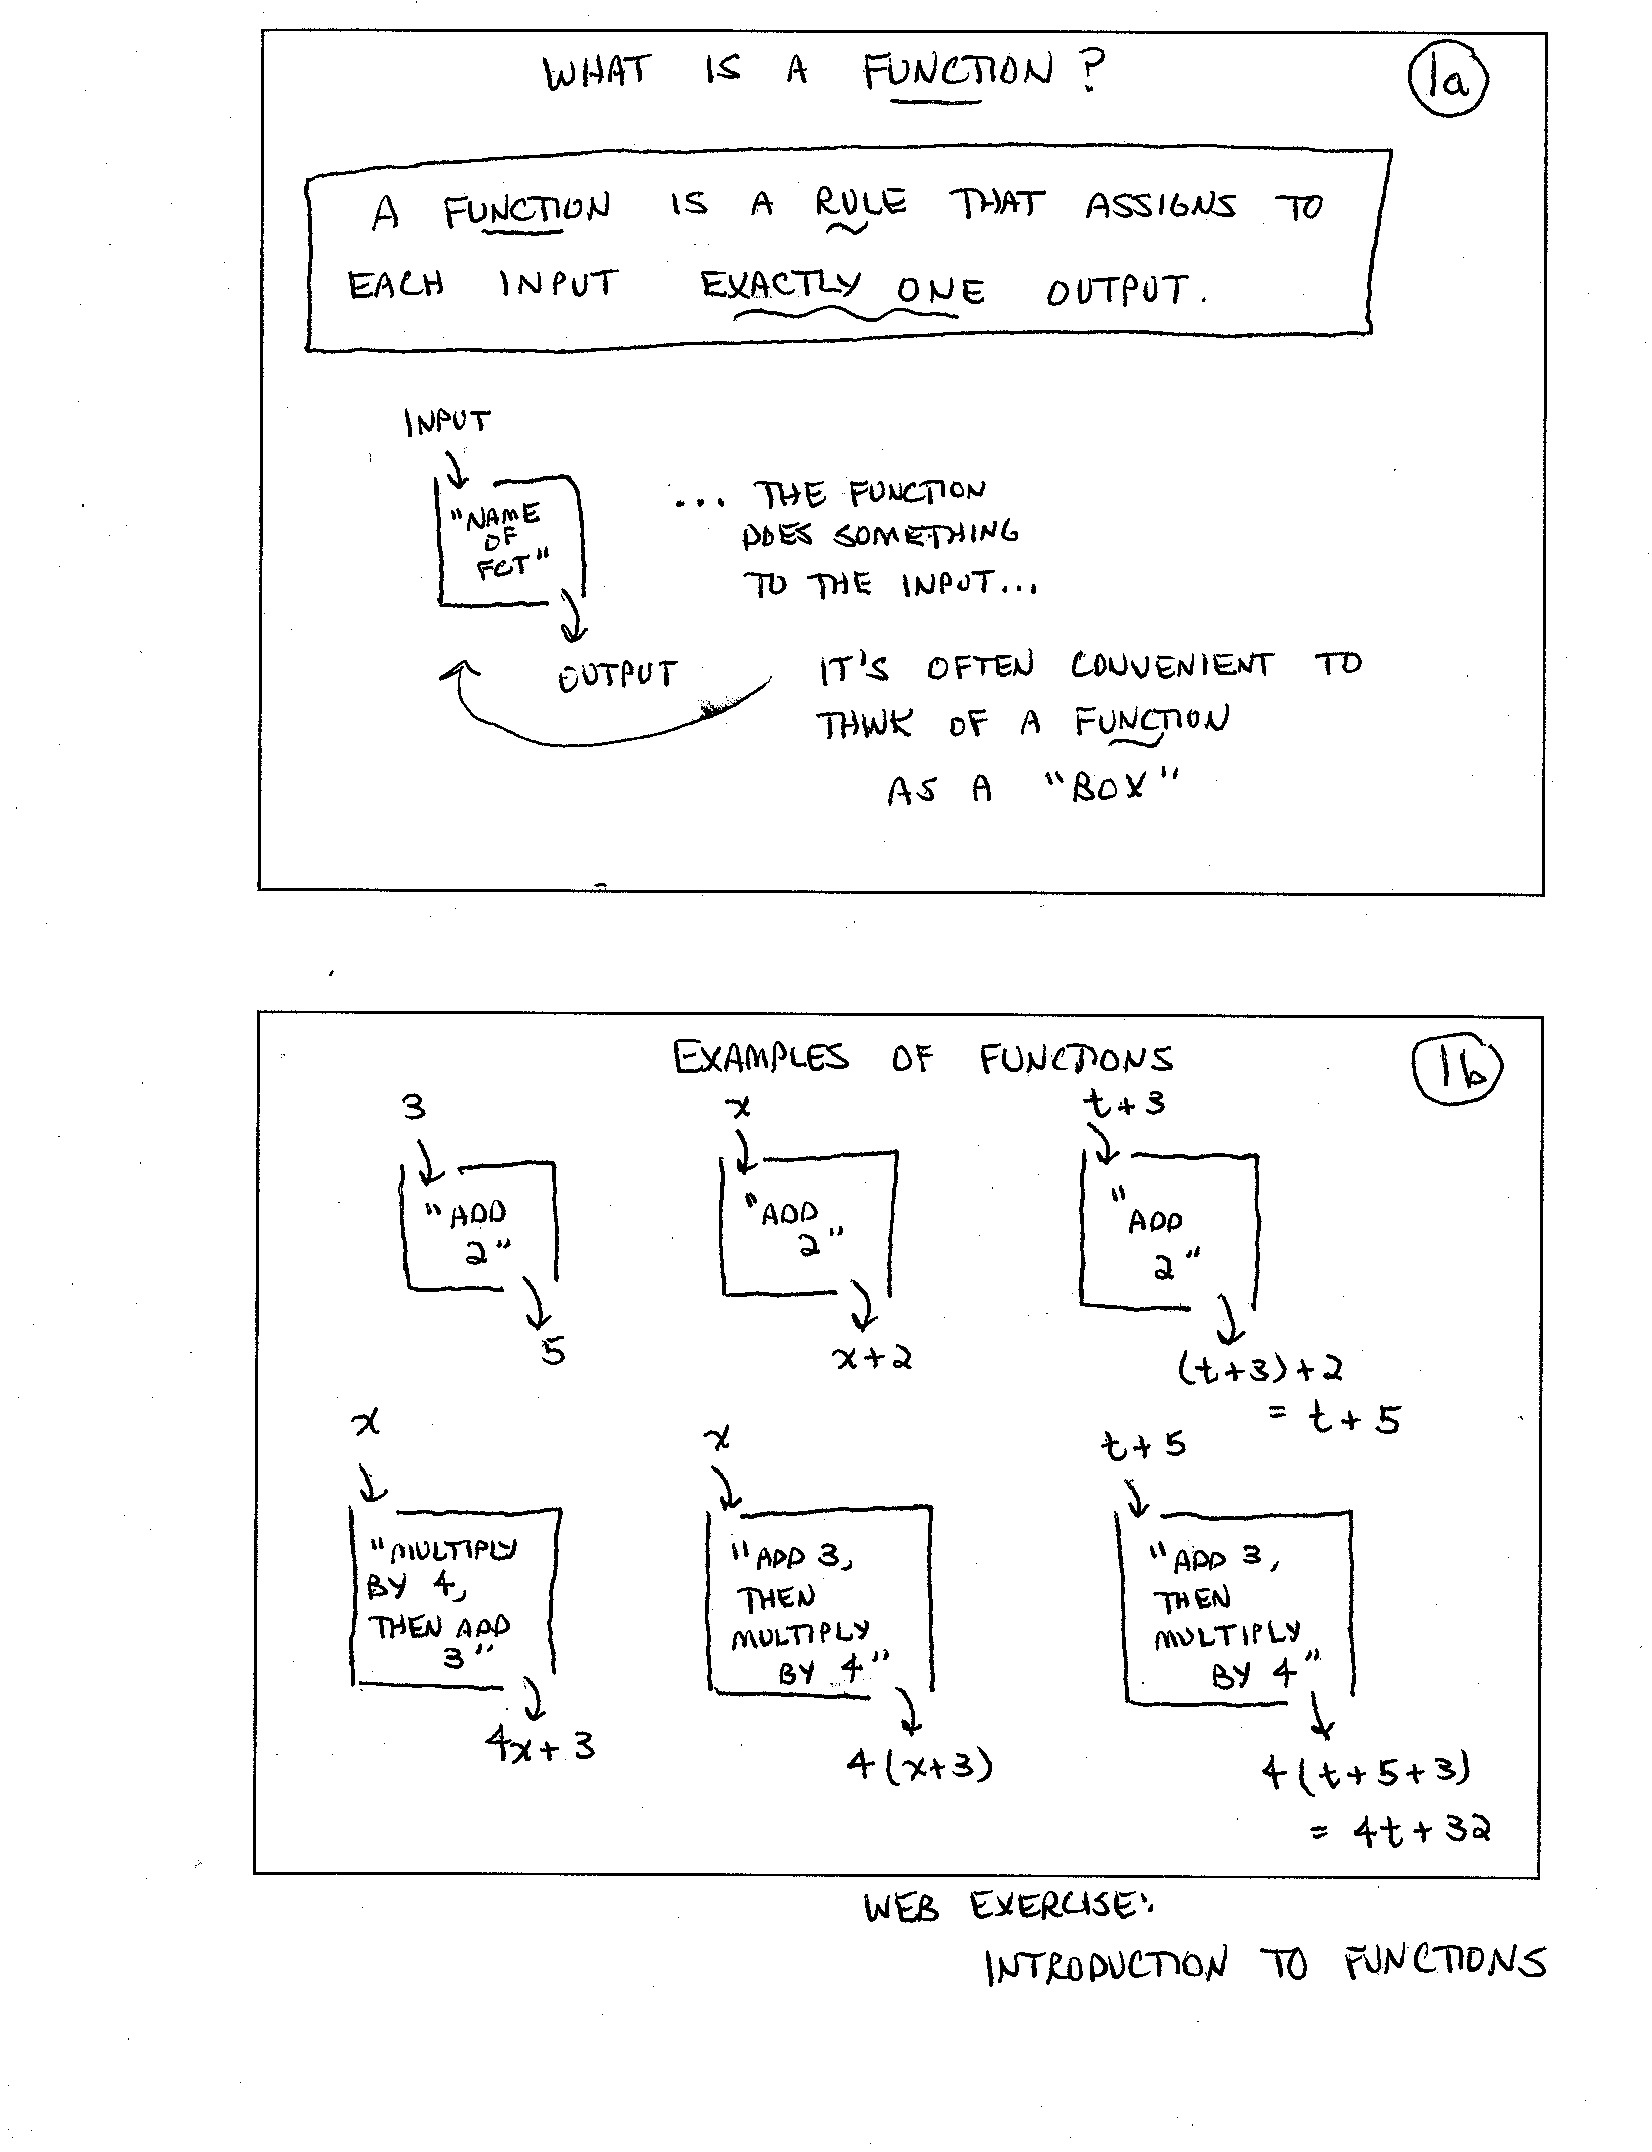 WHAT IS A FUNCTION?
1a
A FUNCTION IS A RULE THAT ASSIGNS TO
EACH INPUT EXACTLY ONE OUTPUT.
INPUT
"NAME
OF
FCT"
OUTPUT
... THE FUNCTION
DOES SOMETHING
TO THE INPUT...
IT'S OFTEN CONVENIENT TO
THINK OF A FUNCTION
AS A "BOX"
EXAMPLES OF FUNCTIONS
1b
3
"ADD
2"
5
x
"ADD
2"
x+2
t+3
"
ADD
2"
(t+3)+2
= t+5
x
"MULTIPLY
BY 4,
THEN ADD
3"
4x+3
x
"ADD 3,
THEN
MULTIPLY
BY 4"
4(x+3)
t+5
"ADD 3,
THEN
MULTIPLY
BY 4"
4(t+5+3)
= 4t+32
WEB EXERCISE:
INTRODUCTION TO FUNCTIONS